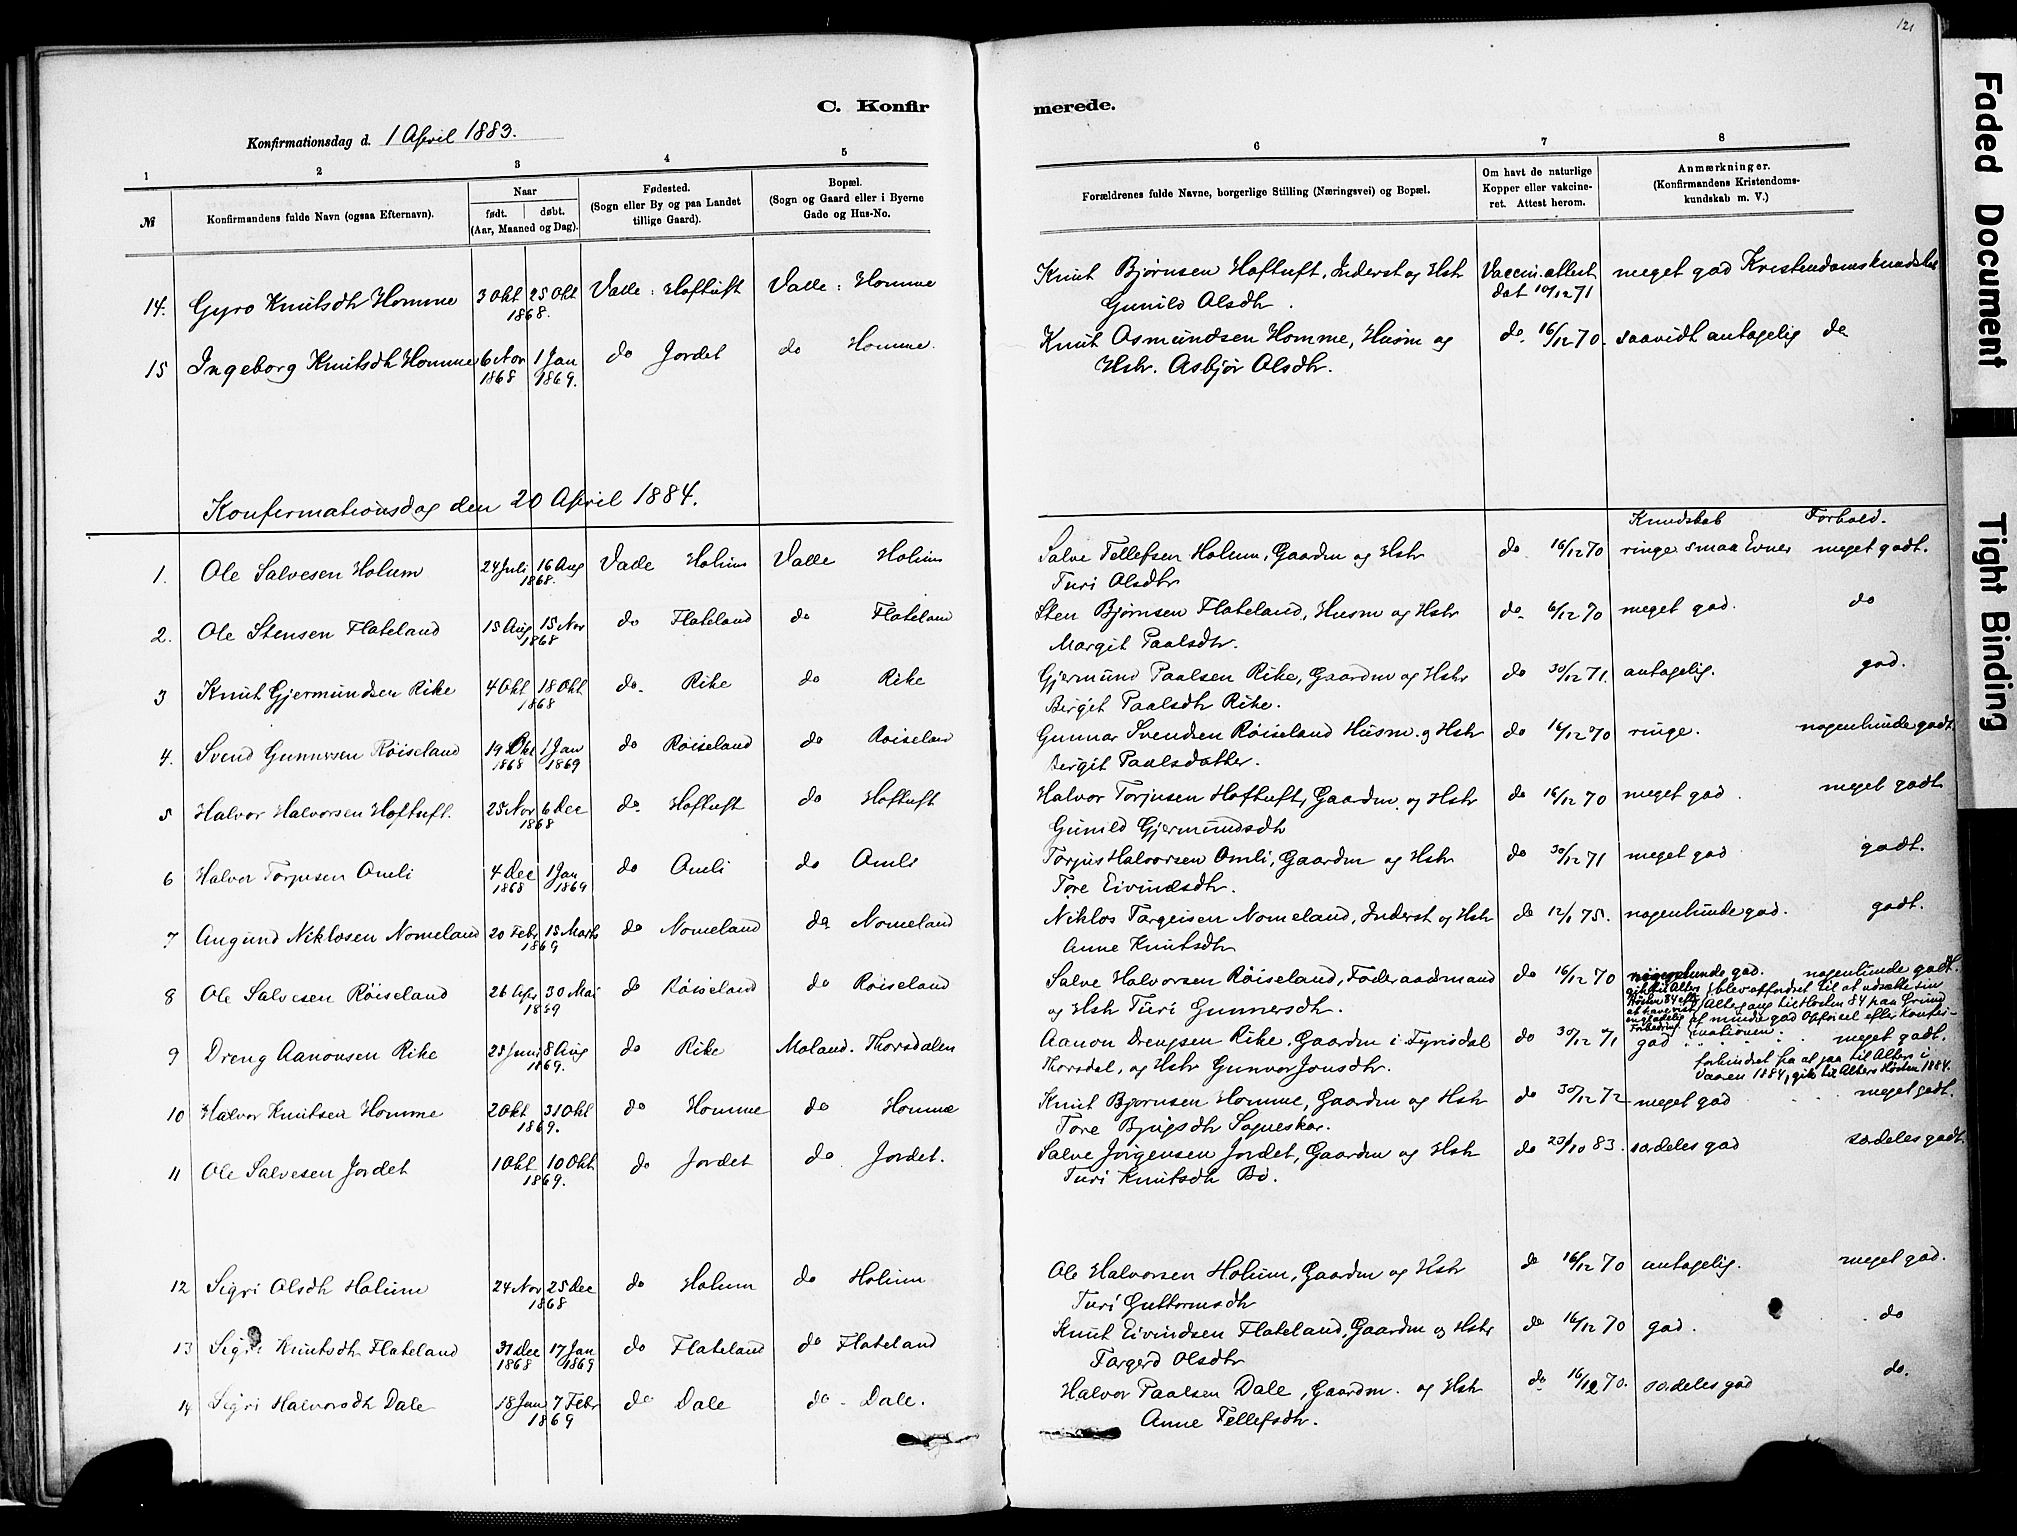 121
C. Konfirmerede.
Konfirmationsdag d. 1 April 1883.
1 2 3 4 5 6 7 8
№ Konfirmandens fulde Navn (ogsaa Efternavn). Naar født. døbt. (Aar, Maaned og Dag). Fødested. (Sogn eller By og paa Landet tillige Gaard). Bopæl. (Sogn og Gaard eller i Byerne Gade og Hus-No. Forældrenes fulde Navne, borgerlige Stilling (Næringsvei) og Bopæl. Om havt de naturlige Kopper eller vakcineret. Attest herom. Anmærkninger. (Konfirmandens Kristendomskundskab m. V.)
14. Gyro Knutsdtr Homme 3 Okt 25 Okt 1868. Valle: Hoftuft Valle: Homme Knut Bjørnsen Hoftuft, Inderst og Hstr Vaccin.attest meget god Kristendomskundskab
Gunild Olsdtr. dat 10/12 71
15 Ingeborg Knutsdtr Homme 6 Nov 1868 1 Jan 1869. do Jordet do Homme. Knut Asmundsen Homme, Husm og do. 16/12 70. saavidt antagelig do
Hstr. Asbjør Olsdtr.
Konfirmationsdag den 20 April 1884.
Kundskab Forhold.
1. Ole Salvesen Holum 24 Juli 16 Aug 1868. Valle Holum Valle Holum Salve Tellefsen Holum, Gaardm og Hstr do 16/12 70 ringe smaa Evner meget godt.
Turi Olsdtr
2. Ole Stensen Flateland 15 Aug 15 Nov 1868 do Flateland do Flateland Sten Bjørnsen Flateland, Husm og Hstr do 6/12 70 meget god. do
Margit Paalsdtr.
3 Knut Gjermundsen Rike 4 Okt 18 Okt 1868 do Rike do Rike Gjermund Paalsen Rike, Gaardm og Hstr do 30/12 71. antagelig. god.
Bergit Paalsdtr Rike.
4. Svend Gunnarsen Røiseland 19 Okt 1868 1 Jan 1869 do Røiseland do Røiseland Gunnar Svendsen Røiseland Husm. og Hstr do 16/12 70 ringe. nogenlunde godt.
Bergit Paalsdatter.
5 Halvor Halvorsen Hoftuft. 25 Nov 6 Dec 1868 do Hoftuft do Hoftuft Halvor Torjusen Hoftuft, Gaardm. og Hstr do 16/12 70 meget god. meget godt
Gunild Gjermundsdtr
6 Halvor Torjusen Omli 4 Dec 1868 1 Jan 1869 do Omli do Omli Torjus Halvorsen Omli, Gaardm og Hstr do 30/12 71 meget god godt.
Tore Eivindsdtr.
7 Augund Niklosen Nomeland 20 Febr 15 Marts 1869 do Nomeland do Nomeland Niklos Targeisen Nomeland, Inderst og Hstr do 12/1 75. nogenlunde god. godt.
Anne Knutsdtr
8 Ole Salvesen Røiseland 26 Apr 30 Mai 1869 do Røiseland do Røiseland Salve Halvorsen Røiseland, Føderaadsmand do 16/12 70 nogenlunde god. nogenlunde godt.
og Hstr Turi Gunnersdtr. gik til Alters Høsten 84 efter at have vist Forbedring. blev opfordret til at udsætte sin Altergang til Høsten 84 paa Grund af mindre god Opførsel efter Konfirmationen.
9 Dreng Aanonsen Rike 25 Juni 8 Aug 1869. do Rike Moland. Thorsdalen Aanon Drengsen Rike, Gaardm i Fyrisdal do 30/12 71 god meget godt.
Thorsdal, og Hstr Gunvor Jonsdtr. forhindret fra at gaa til Alters i Vaaren 1884, gik til Alters Høsten 1884.
10 Halvor Knutsen Homme 2 Okt 31 Okt 1869. do Homme do Homme Knut Bjørnsen Homme, Gaardm og Hstr do 30/12 72 meget god meget godt.
Tore Sogneskar.
11 Ole Salvesen Jordet 1 Okt 10 Okt 1869. do Jordet do Jordet. Salve Jørgensen Jordet, Gaardm og Hstr do 23/10 83. særdeles god særdeles godt.
Turi Knutsdtr Bø.
12 Sigri Olsdtr Holum 24 Nov 25 Dec 1868 do Holum do Holum Ole Halvorsen Holum, Gaardm og Hstr do 16/12 70 antagelig. meget god.
Turi Guttormsdtr
13 Sigri Knutsdtr Flateland 31 Dec 1868 17 Jan 1869 do Flateland do Flateland Knut Eivindsen Flateland, Gaardm og Hstr do 16/12 70 god. do
Targerd Olsdtr
14 Sigri Halvorsdtr Dale 18 Jan 7 Febr 1869 do Dale do Dale. Halvor Paalsen Dale, Gaardm. og Hstr do 16/12 70. særdeles god do.
Anne Tellefsdtr.
Faded Document
Tight Binding